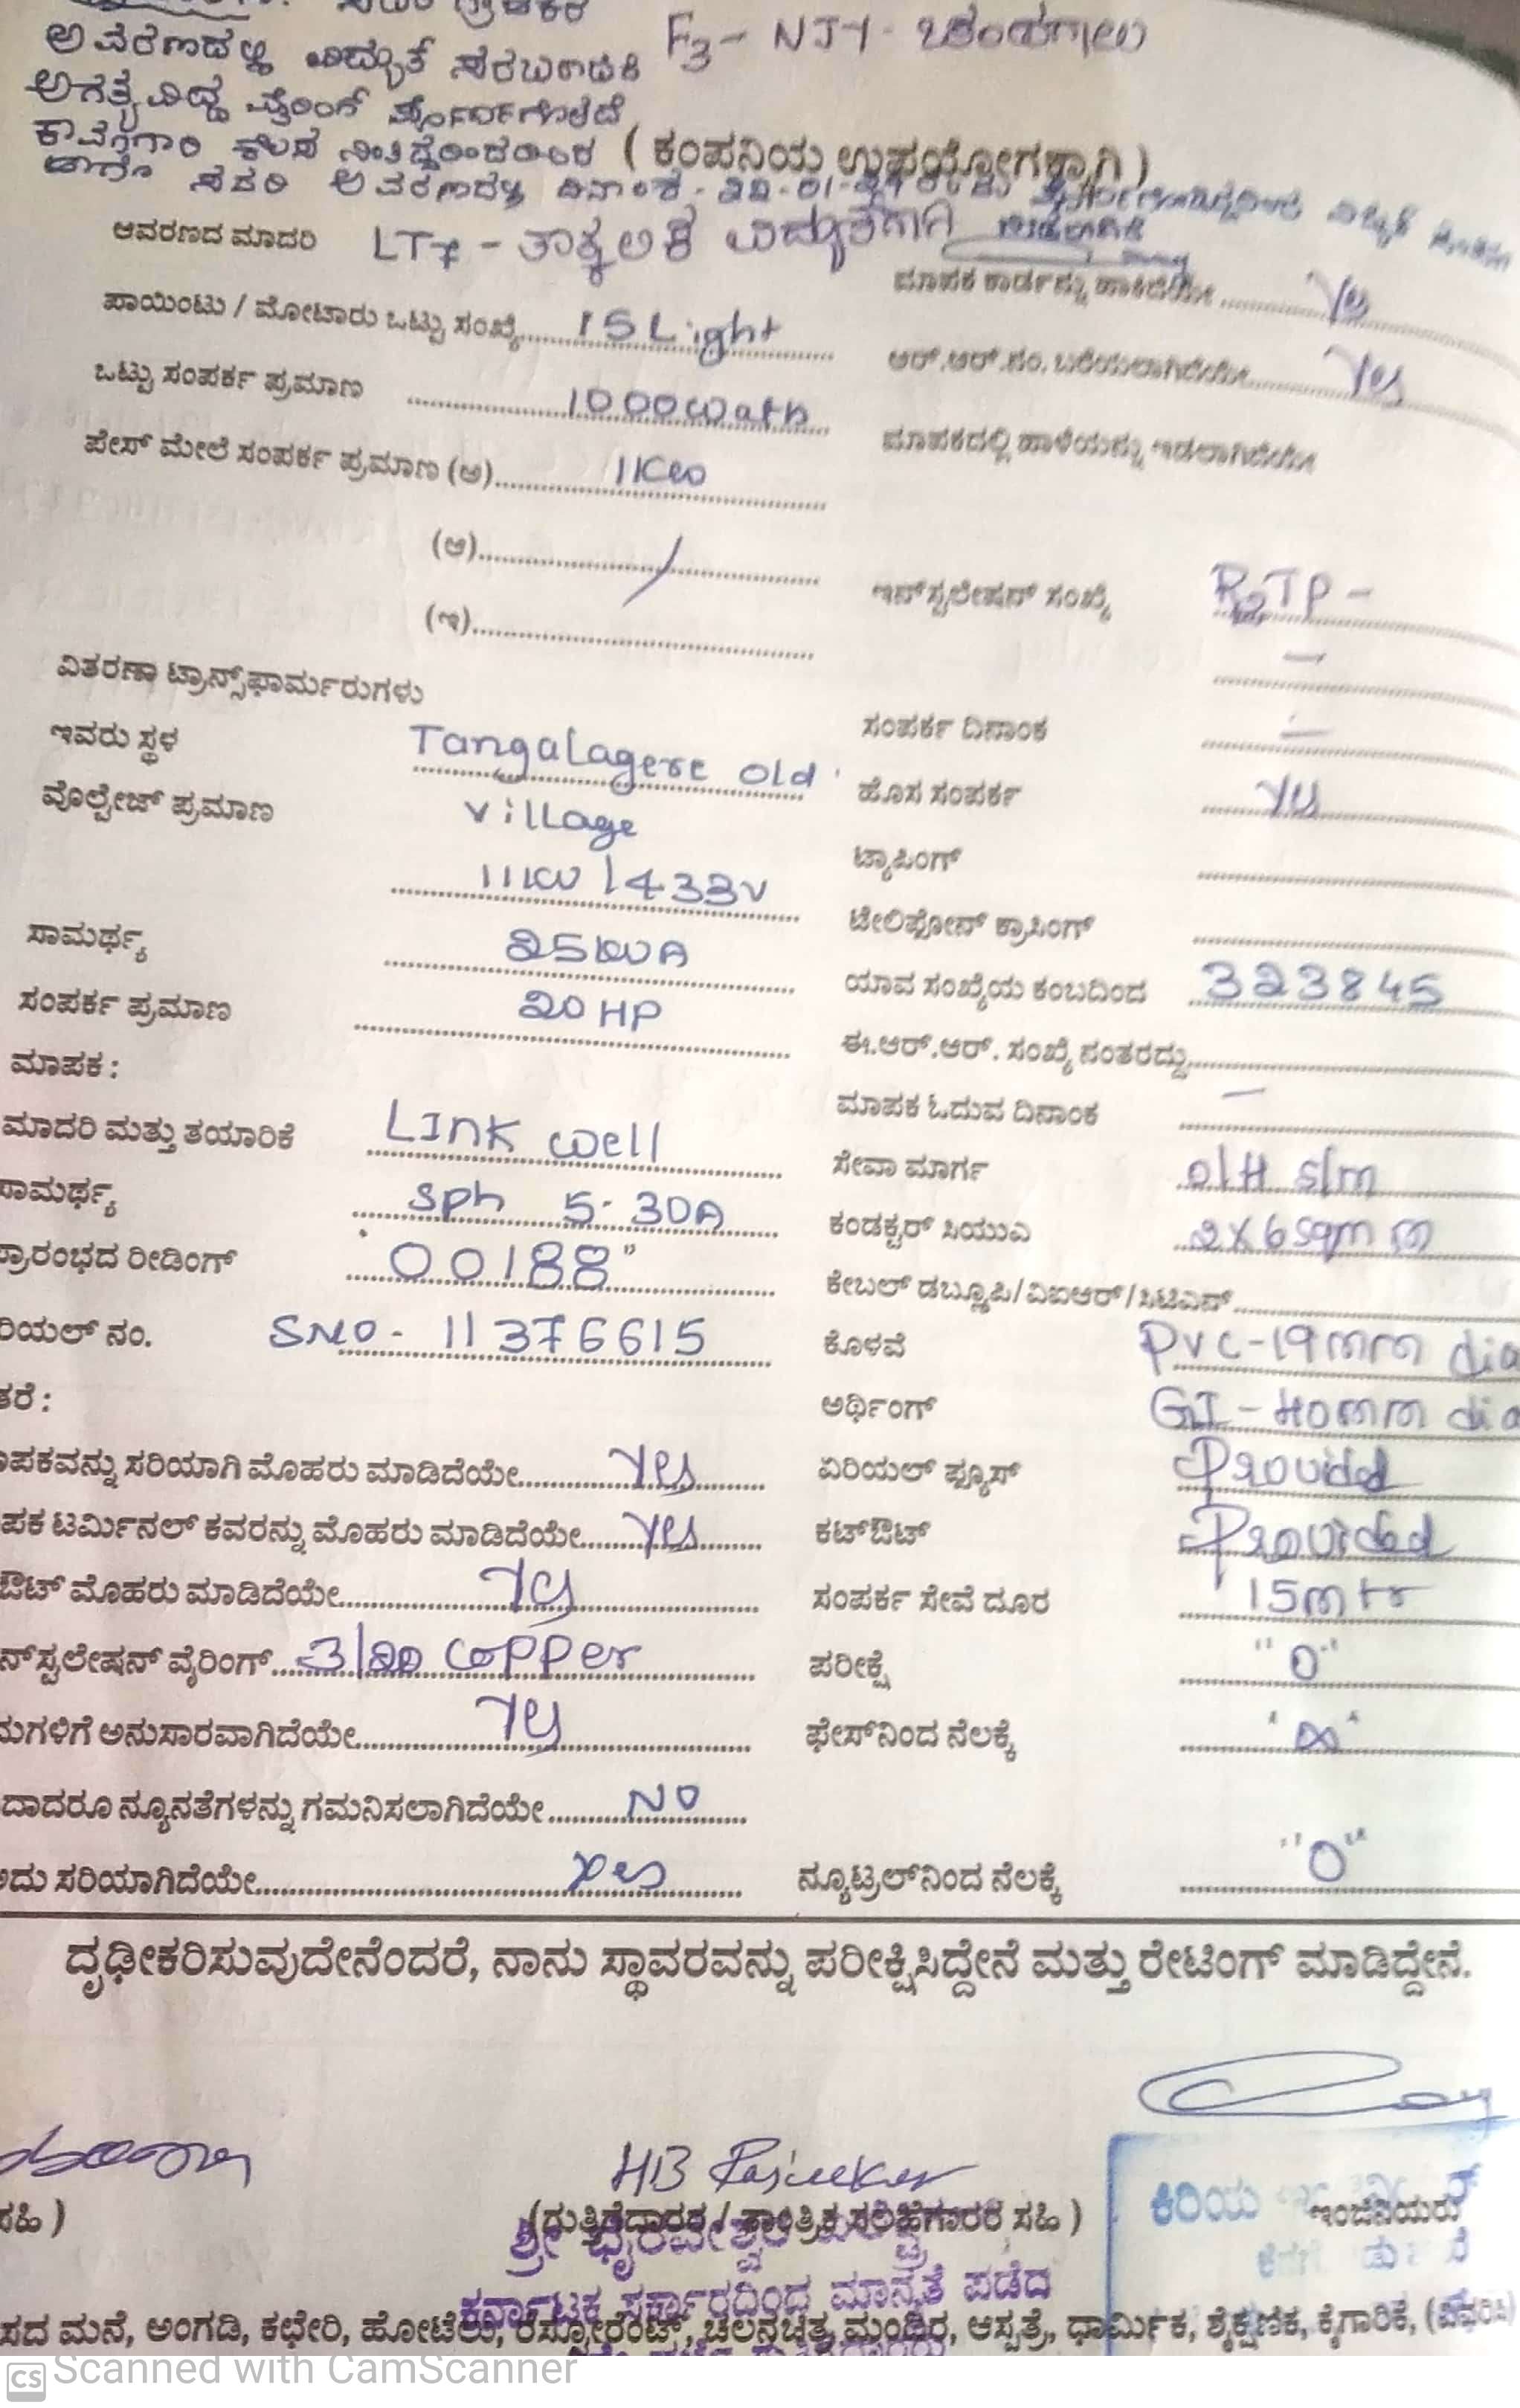 F3 - NJY -
ಆವರಣದಲ್ಲಿ ವಿದ್ಯುತ್
ಅಗತ್ಯವಿದ್ದು ವೈರಿಂಗ್
( ಕಂಪನಿಯ ಉಪಯೋಗಕ್ಕಾಗಿ )
ಸದರಿ ಆವರಣದಲ್ಲಿ ದಿನಾಂಕ -
ಆವರಣದ ಮಾದರಿ LT7 - ತಾತ್ಕಲಿಕ
ಮಾಪಕ ಕಾರ್ಡನ್ನು ಹಾಕಿದೆಯೇ Yes
ಪಾಯಿಂಟು / ಮೋಟಾರು ಒಟ್ಟು ಸಂಖ್ಯೆ 15 Light
ಆರ್.ಆರ್.ನಂ. ಬರೆಯಲಾಗಿದೆಯೇ Yes
ಒಟ್ಟು ಸಂಪರ್ಕ ಪ್ರಮಾಣ 1000 watts
ಮಾಪಕದಲ್ಲಿ ಹಾಳೆಯನ್ನು ಇಡಲಾಗಿದೆಯೇ
ಪೇಸ್ ಮೇಲೆ ಸಂಪರ್ಕ ಪ್ರಮಾಣ (ಅ) 1KW
(ಆ) /
ಇನ್‌ಸ್ಟಲೇಷನ್ ಸಂಖ್ಯೆ
(ಇ)
ವಿತರಣಾ ಟ್ರಾನ್ಸ್‌ಫಾರ್ಮರುಗಳು
ಇವರು ಸ್ಥಳ Tangalagere old
ಸಂಪರ್ಕ ದಿನಾಂಕ –
village
ಹೊಸ ಸಂಪರ್ಕ Yes
ವೊಲ್ಟೇಜ್ ಪ್ರಮಾಣ 11KV / 433V
ಟ್ಯಾಪಿಂಗ್
ಟೇಲಿಫೋನ್ ಕ್ರಾಸಿಂಗ್
ಸಾಮರ್ಥ್ಯ 25KVA
ಯಾವ ಸಂಖ್ಯೆಯ ಕಂಬದಿಂದ 323845
ಸಂಪರ್ಕ ಪ್ರಮಾಣ 20 HP
ಈ.ಆರ್.ಆರ್. ಸಂಖ್ಯೆ ನಂತರದ್ದು
ಮಾಪಕ :
ಮಾಪಕ ಓದುವ ದಿನಾಂಕ –
ಮಾದರಿ ಮತ್ತು ತಯಾರಿಕೆ Link well
ಸೇವಾ ಮಾರ್ಗ O/H S/m
ಸಾಮರ್ಥ್ಯ Sph 5-30A
ಕಂಡಕ್ಟರ್ ಸಿಯುಎ 2X6 sqmm
ಪ್ರಾರಂಭದ ರೀಡಿಂಗ್ "00188"
ಕೇಬಲ್ ಡಬ್ಲ್ಯೂಪಿ/ವಿಐಆರ್/ಸಿಟಿಎಸ್
ರಿಯಲ್ ನಂ. SNO - 11376615
ಕೊಳವೆ PVC - 19mm dia
ತರೆ :
ಅರ್ಥಿಂಗ್ GI - 40mm dia
ಾಪಕವನ್ನು ಸರಿಯಾಗಿ ಮೊಹರು ಮಾಡಿದೆಯೇ Yes
ಏರಿಯಲ್ ಫ್ಯೂಸ್ Provided
ಪಕ ಟರ್ಮಿನಲ್ ಕವರನ್ನು ಮೊಹರು ಮಾಡಿದೆಯೇ Yes
ಕಟ್‌ಔಟ್ Provided
ಔಟ್ ಮೊಹರು ಮಾಡಿದೆಯೇ Yes
ಸಂಪರ್ಕ ಸೇವೆ ದೂರ 15mtr
ನ್‌ಸ್ಟಲೇಷನ್ ವೈರಿಂಗ್ 3/20 copper
ಪರೀಕ್ಷೆ "0"
ಮಗಳಿಗೆ ಅನುಸಾರವಾಗಿದೆಯೇ Yes
ಫೇಸ್‌ನಿಂದ ನೆಲಕ್ಕೆ "∞"
ದಾದರೂ ನ್ಯೂನತೆಗಳನ್ನು ಗಮನಿಸಲಾಗಿದೆಯೇ NO
ಅದು ಸರಿಯಾಗಿದೆಯೇ Yes
ನ್ಯೂಟ್ರಲ್‌ನಿಂದ ನೆಲಕ್ಕೆ "0"
ದೃಢೀಕರಿಸುವುದೇನೆಂದರೆ, ನಾನು ಸ್ಥಾವರವನ್ನು ಪರೀಕ್ಷಿಸಿದ್ದೇನೆ ಮತ್ತು ರೇಟಿಂಗ್ ಮಾಡಿದ್ದೇನೆ.
HB
ಸಹಿ )
(ಗುತ್ತಿಗೆದಾರರ / ತಾಂತ್ರಿಕ ಸಲಹೆಗಾರರ ಸಹಿ )
ಕಿರಿಯ ಇಂಜಿನಿಯರು
ಶ್ರೀ ಭೈರವೇಶ್ವರ
ಕರ್ನಾಟಕ ಸರ್ಕಾರದಿಂದ ಮಾನ್ಯತೆ ಪಡೆದ
ಸದ ಮನೆ, ಅಂಗಡಿ, ಕಛೇರಿ, ಹೋಟೆಲು, ರೆಸ್ಟೋರೆಂಟ್, ಚಲನಚಿತ್ರ ಮಂದಿರ, ಆಸ್ಪತ್ರೆ, ಧಾರ್ಮಿಕ, ಶೈಕ್ಷಣಿಕ, ಕೈಗಾರಿಕೆ, (ವಿವರಿಸಿ)
CS Scanned with CamScanner